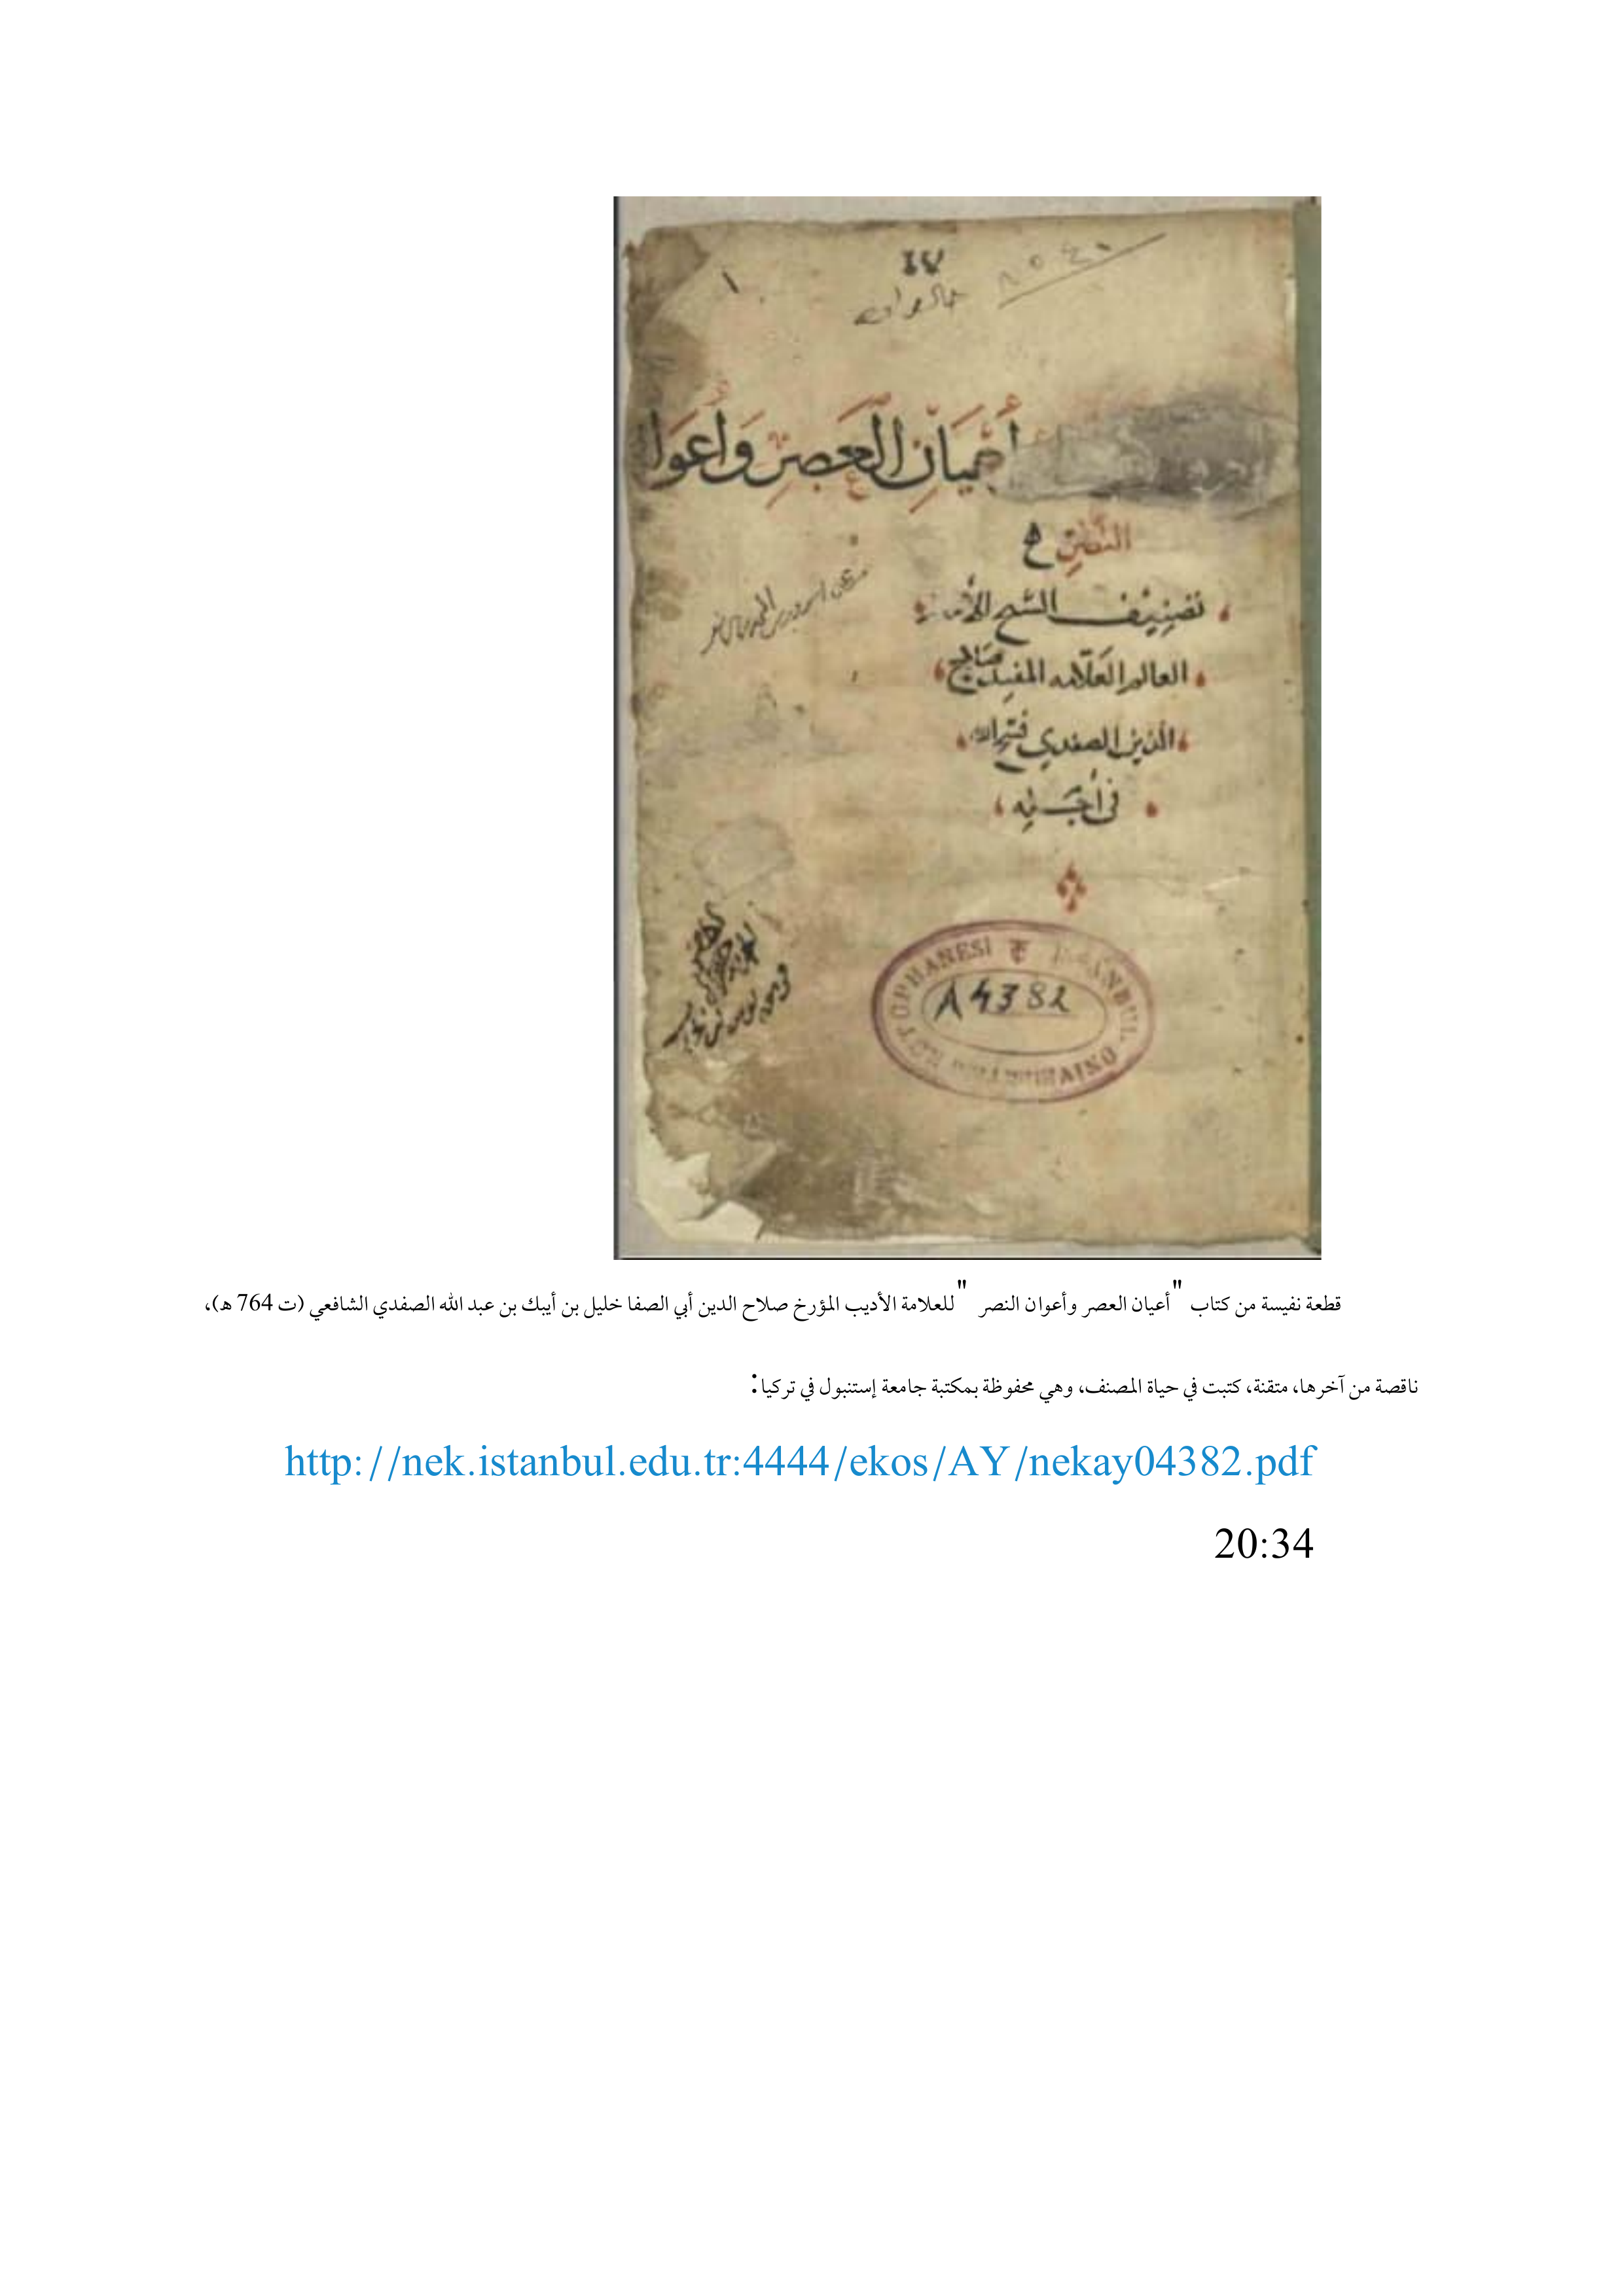 ١٧
٨٥٤٠
١
أعيان العصر وأعوا
النصر
تصنيف الشيخ الامام
العالم العلامه المفيد صلاح
الدين الصفدي فسح الله
في أجله
A 4382
قطعة نفيسة من كتاب "أعيان العصر وأعوان النصر" للعلامة الأديب المؤرخ صلاح الدين أبي الصفا خليل بن أيبك بن عبد الله الصفدي الشافعي (ت 764 هـ)،
ناقصة من آخرها، متقنة، كتبت في حياة المصنف، وهي محفوظة بمكتبة جامعة إستنبول في تركيا:
http://nek.istanbul.edu.tr:4444/ekos/AY/nekay04382.pdf
20:34